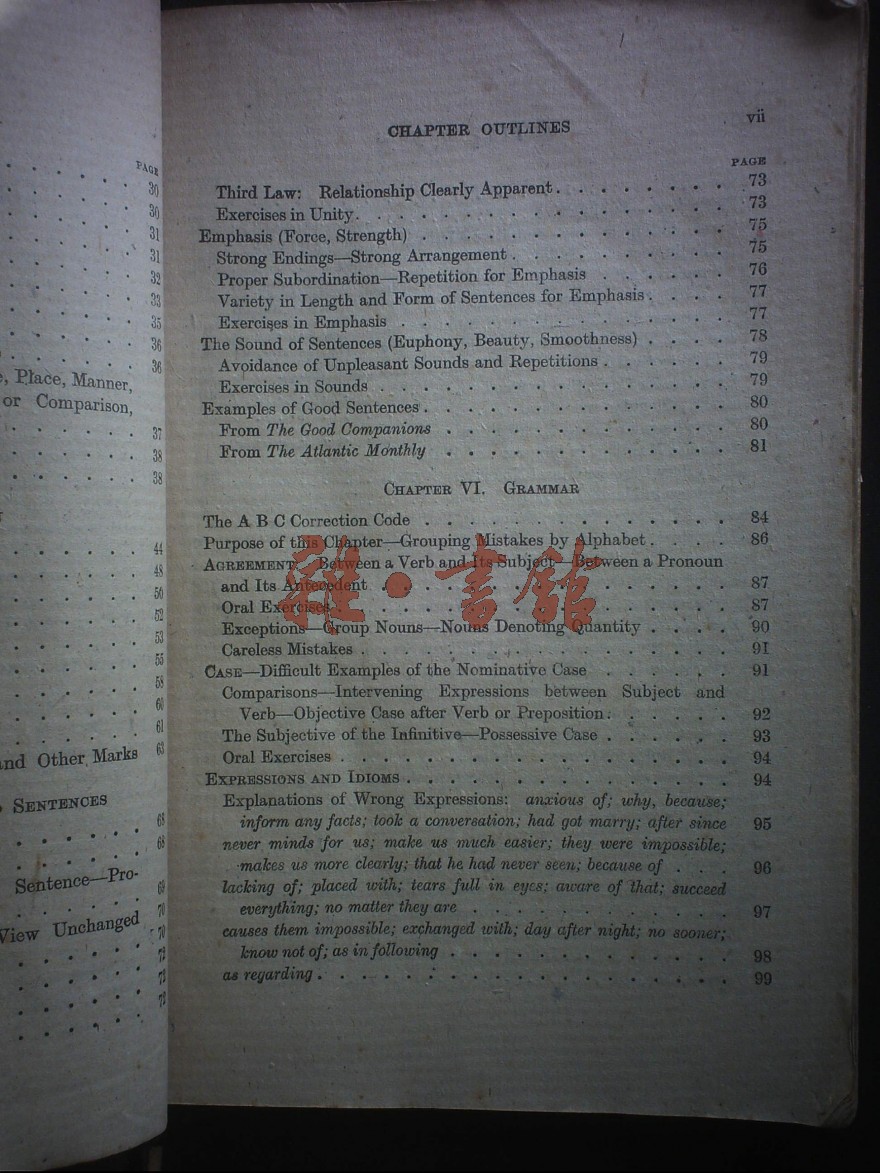 PAGE
30
30
31
31
32
33
35
36
36
, Place, Manner,
or Comparison,
37
38
38
44
48
50
52
53
55
58
60
61
and Other Marks 63
SENTENCES
68
68
Sentence—Pro-
69
70
View Unchanged
70
72
73
73
CHAPTER OUTLINES vii
PAGE
Third Law: Relationship Clearly Apparent . . . . . . . . 73
Exercises in Unity. . . . . . . . . . . . . . . . . 73
Emphasis (Force, Strength) . . . . . . . . . . . . . . 75
Strong Endings—Strong Arrangement . . . . . . . . . . 75
Proper Subordination—Repetition for Emphasis . . . . . . 76
Variety in Length and Form of Sentences for Emphasis . . . . 77
Exercises in Emphasis . . . . . . . . . . . . . . . 77
The Sound of Sentences (Euphony, Beauty, Smoothness) . . . . 78
Avoidance of Unpleasant Sounds and Repetitions . . . . . . 79
Exercises in Sounds . . . . . . . . . . . . . . . . 79
Examples of Good Sentences . . . . . . . . . . . . . . 80
From The Good Companions . . . . . . . . . . . . . 80
From The Atlantic Monthly . . . . . . . . . . . . . 81
CHAPTER VI. GRAMMAR
The A B C Correction Code . . . . . . . . . . . . . . 84
Purpose of this Chapter—Grouping Mistakes by Alphabet . . . . 86
AGREEMENT—Between a Verb and Its Subject—Between a Pronoun
and Its Antecedent . . . . . . . . . . . . . . . . 87
Oral Exercises . . . . . . . . . . . . . . . . . . 87
Exceptions—Group Nouns—Nouns Denoting Quantity . . . . 90
Careless Mistakes . . . . . . . . . . . . . . . . . 91
CASE—Difficult Examples of the Nominative Case . . . . . . 91
Comparisons—Intervening Expressions between Subject and
Verb—Objective Case after Verb or Preposition . . . . . . 92
The Subjective of the Infinitive—Possessive Case . . . . . . 93
Oral Exercises . . . . . . . . . . . . . . . . . . 94
EXPRESSIONS AND IDIOMS . . . . . . . . . . . . . . . 94
Explanations of Wrong Expressions: anxious of; why, because;
inform any facts; took a conversation; had got marry; after since 95
never minds for us; make us much easier; they were impossible;
makes us more clearly; that he had never seen; because of . . . 96
lacking of; placed with; tears full in eyes; aware of that; succeed
everything; no matter they are . . . . . . . . . . . . 97
causes them impossible; exchanged with; day after night; no sooner;
know not of; as in following . . . . . . . . . . . . . 98
as regarding . . . . . . . . . . . . . . . . . . . 99
雜・書館